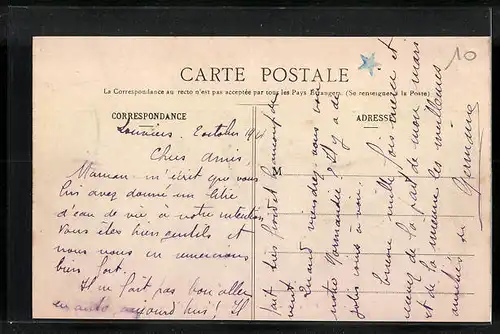 10
CARTE POSTALE
La Correspondance au recto n'est pas acceptée par tous les Pays Étrangers. (Se renseigner à la Poste)
CORRESPONDANCE
ADRESSE
Louviers. 2 octobre 191
Chers amis,
Maman m'écrit que vous
lui avez donné un litre
d'eau de vie, à notre intention
Vous êtes bien gentils et
nous vous en remercions
bien fort.
Il ne fait pas bon aller
en auto, aujourd'hui ! Il
fait très froid et beaucoup de
vent.
Quand viendrez vous voir
notre Normandie ? Il y a de
jolis coins à voir.
Encore mille fois merci et
recevez de la part de mon mari
et de la mienne les meilleures
amitiés de
Germaine